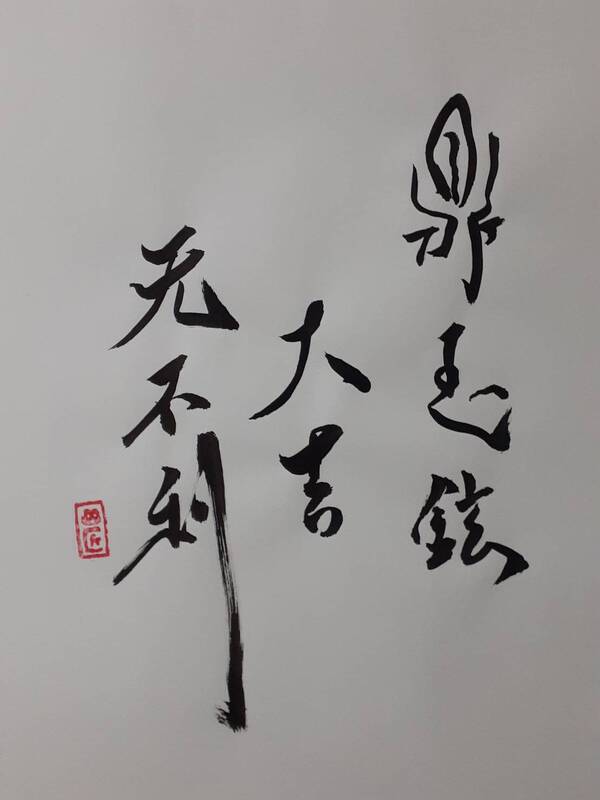 鼎玉鉉
大吉
无不利